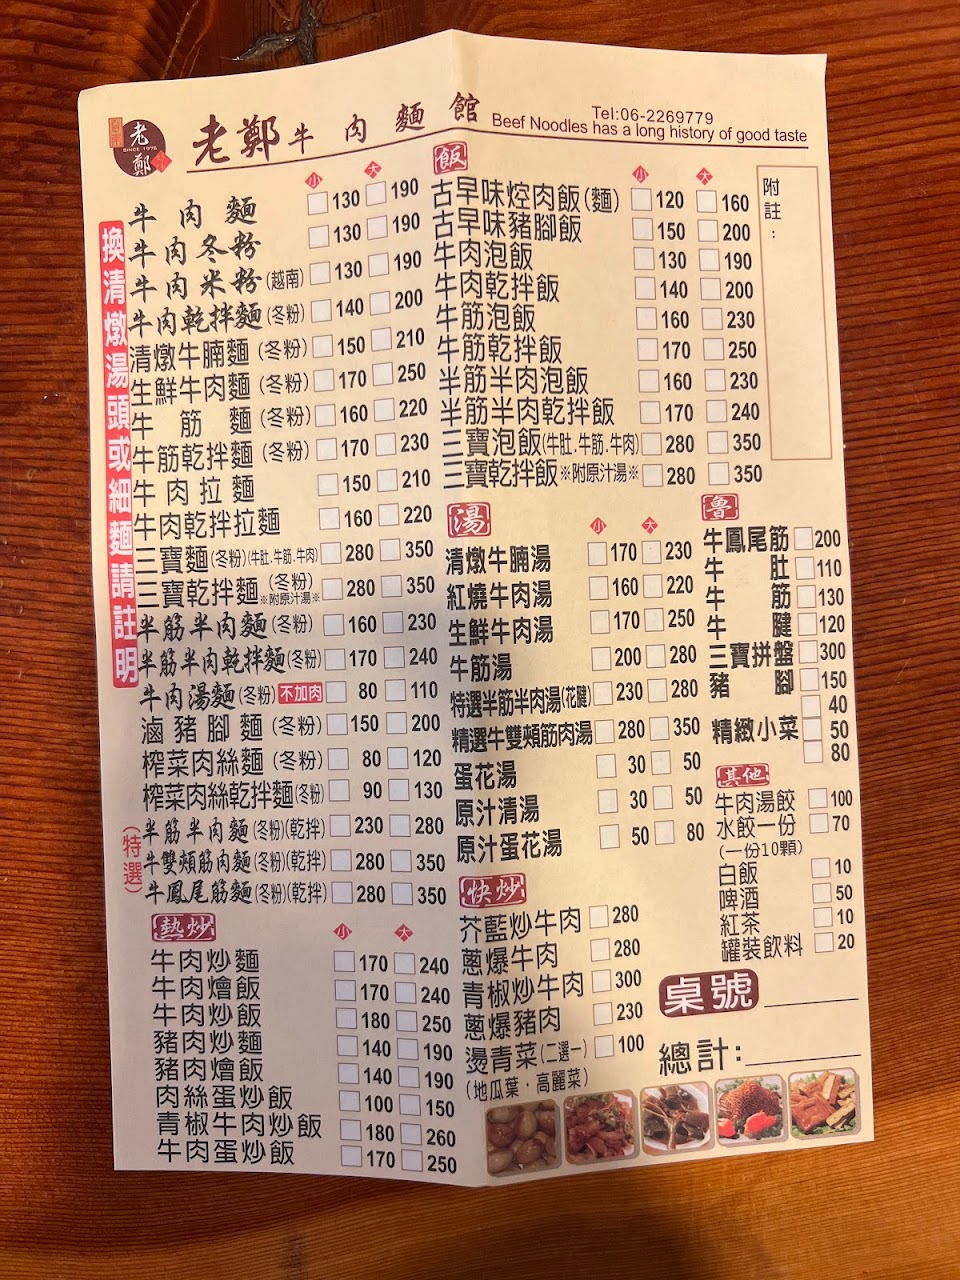 老鄭
SINCE 1976
老鄭牛肉麵館
Tel:06-2269779
Beef Noodles has a long history of good taste
換清燉湯頭或細麵請註明
小 大
牛肉麵 130 190
牛肉冬粉 130 190
牛肉米粉(越南) 130 190
牛肉乾拌麵(冬粉) 140 200
清燉牛腩麵(冬粉) 150 210
生鮮牛肉麵(冬粉) 170 250
牛筋麵(冬粉) 160 220
牛筋乾拌麵(冬粉) 170 230
牛肉拉麵 150 210
牛肉乾拌拉麵 160 220
三寶麵(冬粉)(牛肚.牛筋.牛肉) 280 350
三寶乾拌麵(冬粉)※附原汁湯※ 280 350
半筋半肉麵(冬粉) 160 230
半筋半肉乾拌麵(冬粉) 170 240
牛肉湯麵(冬粉)不加肉 80 110
滷豬腳麵(冬粉) 150 200
榨菜肉絲麵(冬粉) 80 120
榨菜肉絲乾拌麵(冬粉) 90 130
(特選)
半筋半肉麵(冬粉)(乾拌) 230 280
牛雙頰筋肉麵(冬粉)(乾拌) 280 350
牛鳳尾筋麵(冬粉)(乾拌) 280 350
熱炒 小 大
牛肉炒麵 170 240
牛肉燴飯 170 240
牛肉炒飯 180 250
豬肉炒麵 140 190
豬肉燴飯 140 190
肉絲蛋炒飯 100 150
青椒牛肉炒飯 180 260
牛肉蛋炒飯 170 250
飯 小 大
古早味焢肉飯(麵) 120 160
古早味豬腳飯 150 200
牛肉泡飯 130 190
牛肉乾拌飯 140 200
牛筋泡飯 160 230
牛筋乾拌飯 170 250
半筋半肉泡飯 160 230
半筋半肉乾拌飯 170 240
三寶泡飯(牛肚.牛筋.牛肉) 280 350
三寶乾拌飯※附原汁湯※ 280 350
附註:
湯 小 大
清燉牛腩湯 170 230
紅燒牛肉湯 160 220
生鮮牛肉湯 170 250
牛筋湯 200 280
特選半筋半肉湯(花腱) 230 280
精選牛雙頰筋肉湯 280 350
蛋花湯 30 50
原汁清湯 30 50
原汁蛋花湯 50 80
快炒
芥藍炒牛肉 280
蔥爆牛肉 280
青椒炒牛肉 300
蔥爆豬肉 230
燙青菜(二選一) 100
(地瓜葉・高麗菜)
魯
牛鳳尾筋 200
牛肚 110
牛筋 130
牛腱 120
三寶拼盤 300
豬腳 150
精緻小菜 40 50 80
其他
牛肉湯餃 100
水餃一份 70
(一份10顆)
白飯 10
啤酒 50
紅茶 10
罐裝飲料 20
桌號
總計: